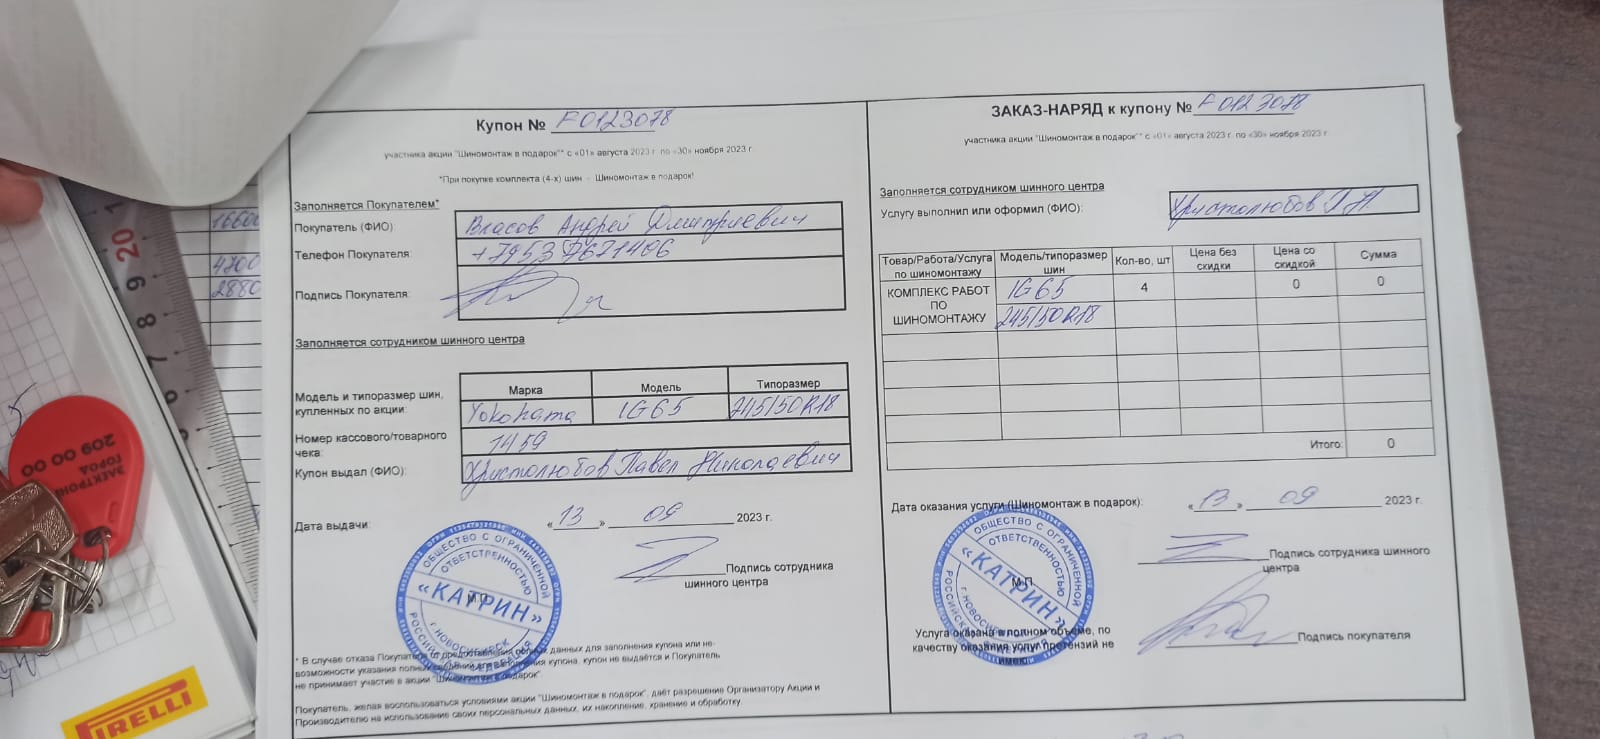 Купон № F0123078
участника акции "Шиномонтаж в подарок"* с «01» августа 2023 г. по «30» ноября 2023 г.
*При покупке комплекта (4-х) шин - Шиномонтаж в подарок!
Заполняется Покупателем*
Покупатель (ФИО): Власов Андрей Дмитриевич
Телефон Покупателя: +79537671406
Подпись Покупателя:
Заполняется сотрудником шинного центра
Марка Модель Типоразмер
Модель и типоразмер шин, купленных по акции: Yokohama IG65 245/50R18
Номер кассового/товарного чека: 1459
Купон выдал (ФИО): Христолюбов Павел Николаевич
Дата выдачи: «13» 09 2023 г.
Подпись сотрудника
шинного центра
М.П.
ОБЩЕСТВО С ОГРАНИЧЕННОЙ
ОТВЕТСТВЕННОСТЬЮ
«КАТРИН»
г. НОВОСИБИРСК
* В случае отказа Покупателя от предоставления полных данных для заполнения купона или не-
возможности указания полных сведений для заполнения купона, купон не выдаётся и Покупатель
не принимает участие в акции "Шиномонтаж в подарок".
Покупатель, желая воспользоваться условиями акции "Шиномонтаж в подарок", даёт разрешение Организатору Акции и
Производителю на использование своих персональных данных, их накопление, хранение и обработку.
ЗАКАЗ-НАРЯД к купону № F0123078
участника акции "Шиномонтаж в подарок"* с «01» августа 2023 г. по «30» ноября 2023 г.
Заполняется сотрудником шинного центра
Услугу выполнил или оформил (ФИО): Христолюбов П.Н.
Товар/Работа/Услуга по шиномонтажу Модель/типоразмер шин Кол-во, шт Цена без скидки Цена со скидкой Сумма
КОМПЛЕКС РАБОТ ПО ШИНОМОНТАЖУ IG65 4 0 0
245/50R18
Итого: 0
Дата оказания услуги (Шиномонтаж в подарок): «13» 09 2023 г.
Подпись сотрудника шинного
центра
М.П.
ОБЩЕСТВО С ОГРАНИЧЕННОЙ
ОТВЕТСТВЕННОСТЬЮ
«КАТРИН»
г. НОВОСИБИРСК
Услуга оказана в полном объеме, по
качеству оказания услуг претензий не
имею
Подпись покупателя
16600
4700
2880
20
9
8
7
209 00 00
ГОРОД
PIRELLI